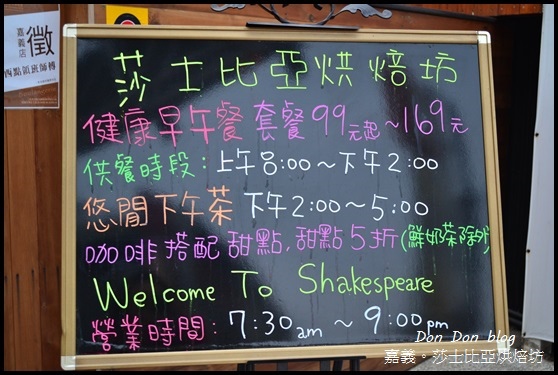 嘉義店
徵
西點領班師傅
莎士比亞烘焙坊
健康早午餐 套餐 99元起~169元
供餐時段：上午8:00~下午2:00
悠閒下午茶 下午2:00~5:00
咖啡搭配甜點，甜點5折(鮮奶茶除外)
Welcome To Shakespeare
營業時間：7:30am ~ 9:00pm
Don Don blog
嘉義。莎士比亞烘焙坊